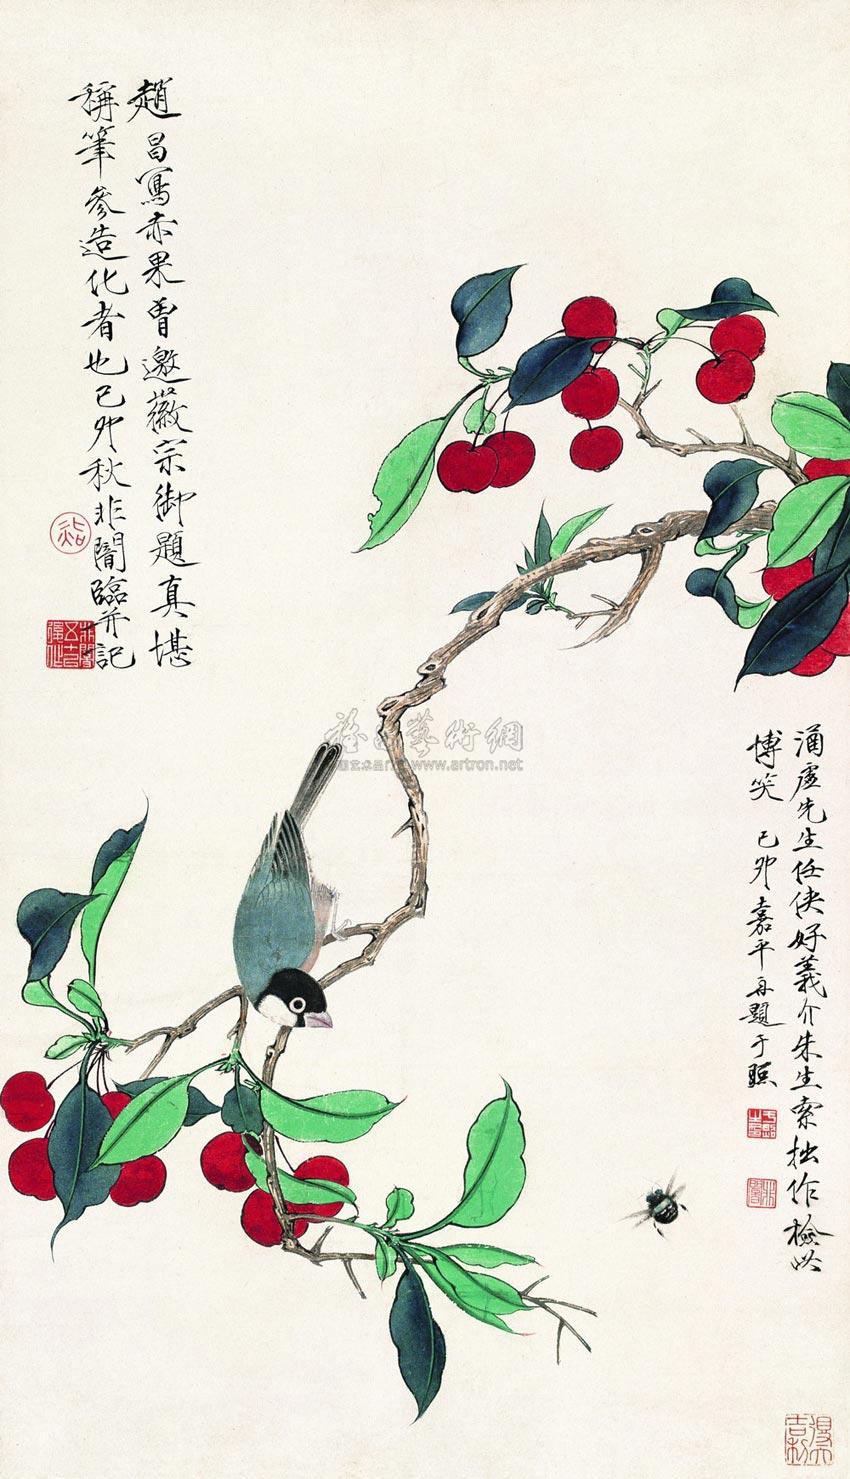 趙昌寫赤果曾邀徽宗御題真堪
稱筆參造化者也己卯秋非闇臨并記
涵虛先生任俠好義介朱生索拙作檢此
博笑 己卯嘉平再題 于照
雅昌藝術網
www.artron.net